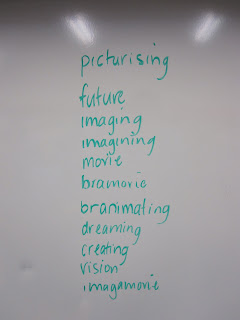 picturising
future
imaging
imagining
movie
bramovie
branimating
dreaming
creating
vision
imagamovie